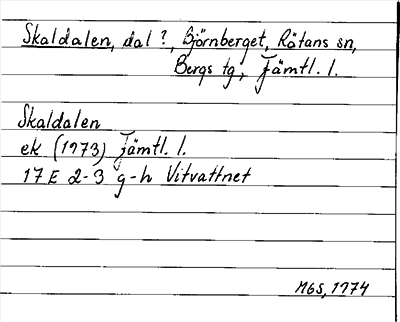 Skaldalen, dal?, Björnberget, Rätans sn,
Bergs tg, Jämtl. l.
Skaldalen
ek (1973) Jämtl. l.
17E 2-3 g-h Vitvattnet
MGS, 1974